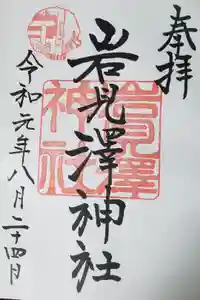 奉拝
岩見澤神社
令和元年八月二十四日
岩見澤
神社